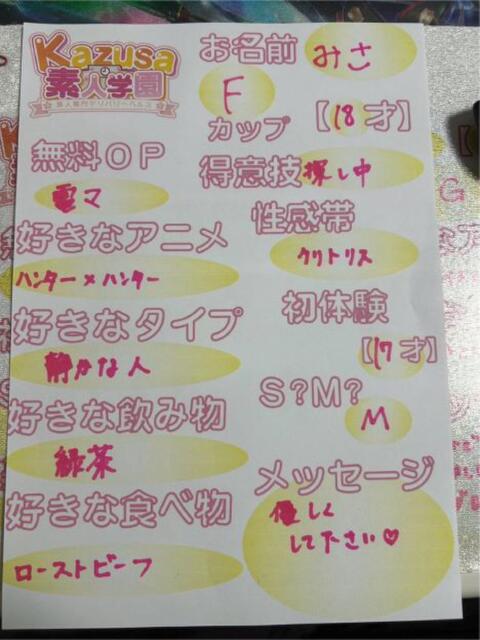 Kazusa
の
素人学園
素人専門デリバリーヘルス
お名前
みさ
F
カップ
【18才】
無料OP
電マ
得意技
探し中
好きなアニメ
ハンター×ハンター
性感帯
クリトリス
好きなタイプ
静かな人
初体験
【17才】
好きな飲み物
緑茶
S?M?
M
好きな食べ物
ローストビーフ
メッセージ
優しく
して下さい♡